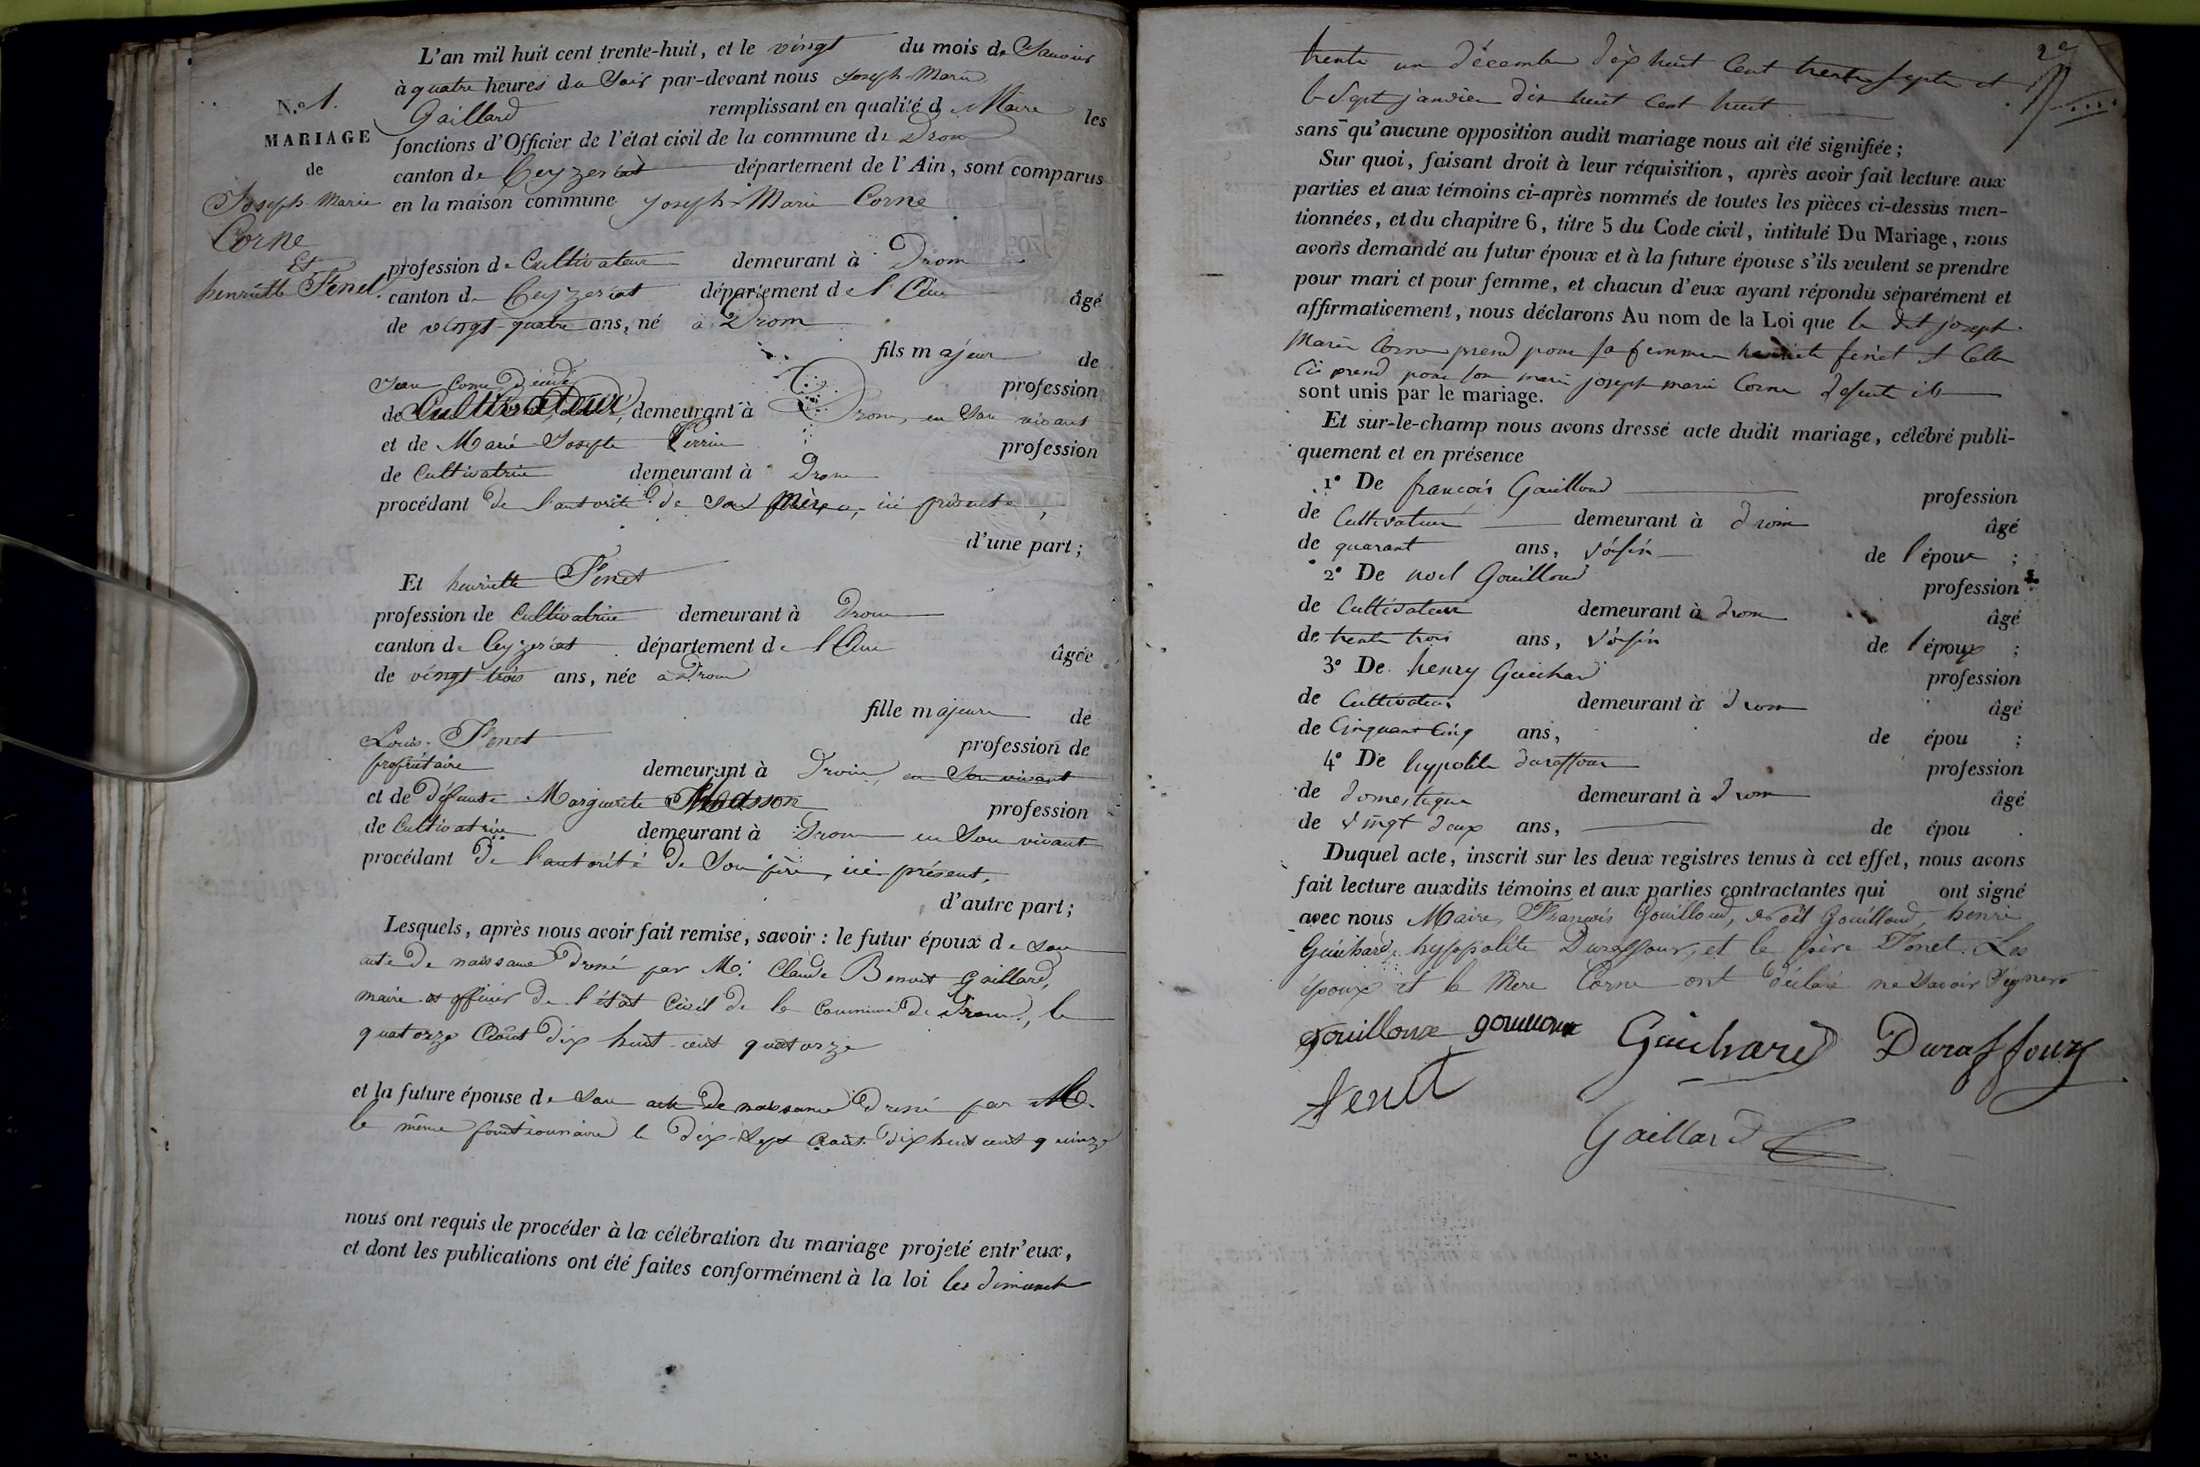 L'an mil huit cent trente-huit, et le vingt du mois de Janvier
à quatre heures du Soir par-devant nous Joseph-Marie
Gaillard remplissant en qualité d Maire les
fonctions d'Officier de l'état civil de la commune de Drom
canton de Ceyzeriat département de l'Ain, sont comparus
en la maison commune Joseph-Marie Corne
N.º 1.
MARIAGE
de
Joseph-Marie
Corne
Et
henriette Fenet.
profession de Cultivateur demeurant à Drom
canton de Ceyzeriat département de l'Ain âgé
de vingt-quatre ans, né à Drom
fils majeur de
Jean Corne décédé profession
de Cultivateur, demeurant à Drom, en Son vivant
et de Marie Josephte Perrin profession
de Cultivatrice demeurant à Drom
procédant de l'autorité de sa mère, ici présente,
d'une part;
Et henriette Fenet
profession de Cultivatrice demeurant à Drom
canton de Ceyzeriat département de l'Ain âgée
de vingt trois ans, née à Drom
fille majeure de
Louis Fenet profession de
propriétaire demeurant à Drom, en Son vivant
et de défunte Marguerite profession
de Cultivatrice demeurant à Drom en Son vivant
procédant de l'autorité de Son père, ici présent,
d'autre part;
Lesquels, après nous avoir fait remise, savoir : le futur époux de son
acte de naissance dressé par Mr. Claude Benoit Gaillard,
maire et officier de l'état Civil de la Commune de Drom, le
quatorze Août dix huit-cent quatorze
et la future épouse de son acte de naissance dressé par M.
le même fonctionnaire le dix-sept Août dix huit cent quinze
nous ont requis de procéder à la célébration du mariage projeté entr'eux,
et dont les publications ont été faites conformément à la loi les dimanche
2e
trente un décembre dix huit Cent trente Sept et
le Sept janvier dix huit Cent huit
sans qu'aucune opposition audit mariage nous ait été signifiée;
Sur quoi, faisant droit à leur réquisition, après avoir fait lecture aux
parties et aux témoins ci-après nommés de toutes les pièces ci-dessus men-
tionnées, et du chapitre 6, titre 5 du Code civil, intitulé Du Mariage, nous
avons demandé au futur époux et à la future épouse s'ils veulent se prendre
pour mari et pour femme, et chacun d'eux ayant répondu séparément et
affirmativement, nous déclarons Au nom de la Loi que le dit joseph
Marie Corne prend pour sa femme henriete fenet et Celle
Ci prend pour son mari joseph marie Corne
sont unis par le mariage.
Et sur-le-champ nous avons dressé acte dudit mariage, célébré publi-
quement et en présence
1º De francois Gouilloud profession
de Cultivateur demeurant à drom âgé
de quarant ans, voisin de l'époux ;
2º De noel Gouilloud profession
de Cultivateur demeurant à drom âgé
de trente trois ans, voisin de l'époux ;
3º De henry Guichard profession
de Cultivateur demeurant à drom âgé
de Cinquant Cinq ans, de épou ;
4º De hypolite duraffour profession
de domestique demeurant à drom âgé
de vingt deux ans, de épou .
Duquel acte, inscrit sur les deux registres tenus à cet effet, nous avons
fait lecture auxdits témoins et aux parties contractantes qui ont signé
avec nous Maire, François Gouilloud, Noël Gouilloud, henri
Guichard, hyppolite Duraffour, et le père Fenet. Les
époux et la Mère Corne ont déclaré ne Savoir Signer
gouilloux gouilloux Guichard Duraffour
fenet
Gaillard